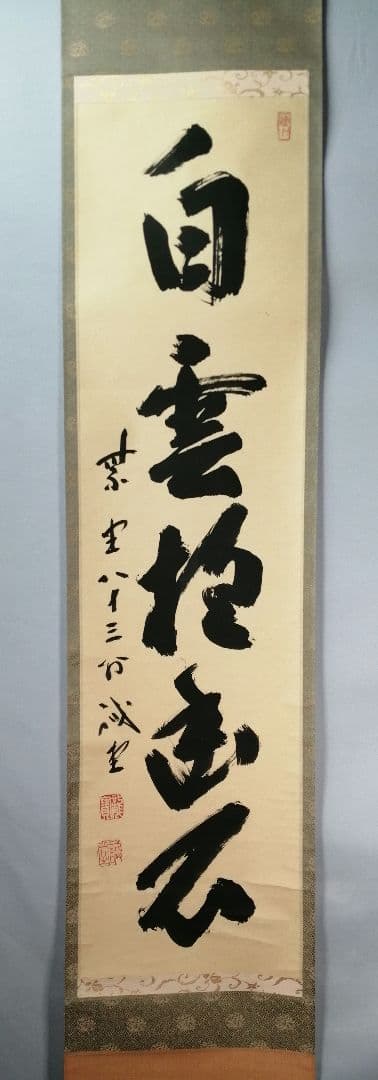 白雲抱幽石
紫野八十三翁誡堂